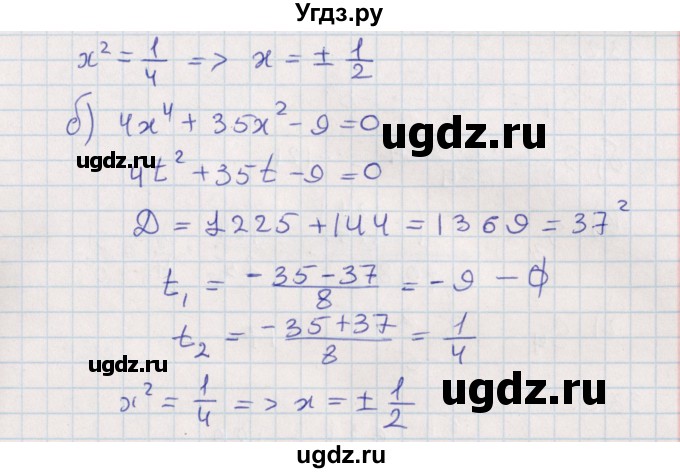 Угдз.ру
x² = 1/4 => x = ± 1/2
б) 4x⁴ + 35x² - 9 = 0
ugdz.ru
ugdz.ru
4t² + 35t - 9 = 0
Д = 1225 + 144 = 1369 = 37²
t₁ = (-35-37)/8 = -9 - ϕ
t₂ = (-35+37)/8 = 1/4
ugdz.ru
ugdz.ru
x² = 1/4 => x = ± 1/2
ugdz.ru